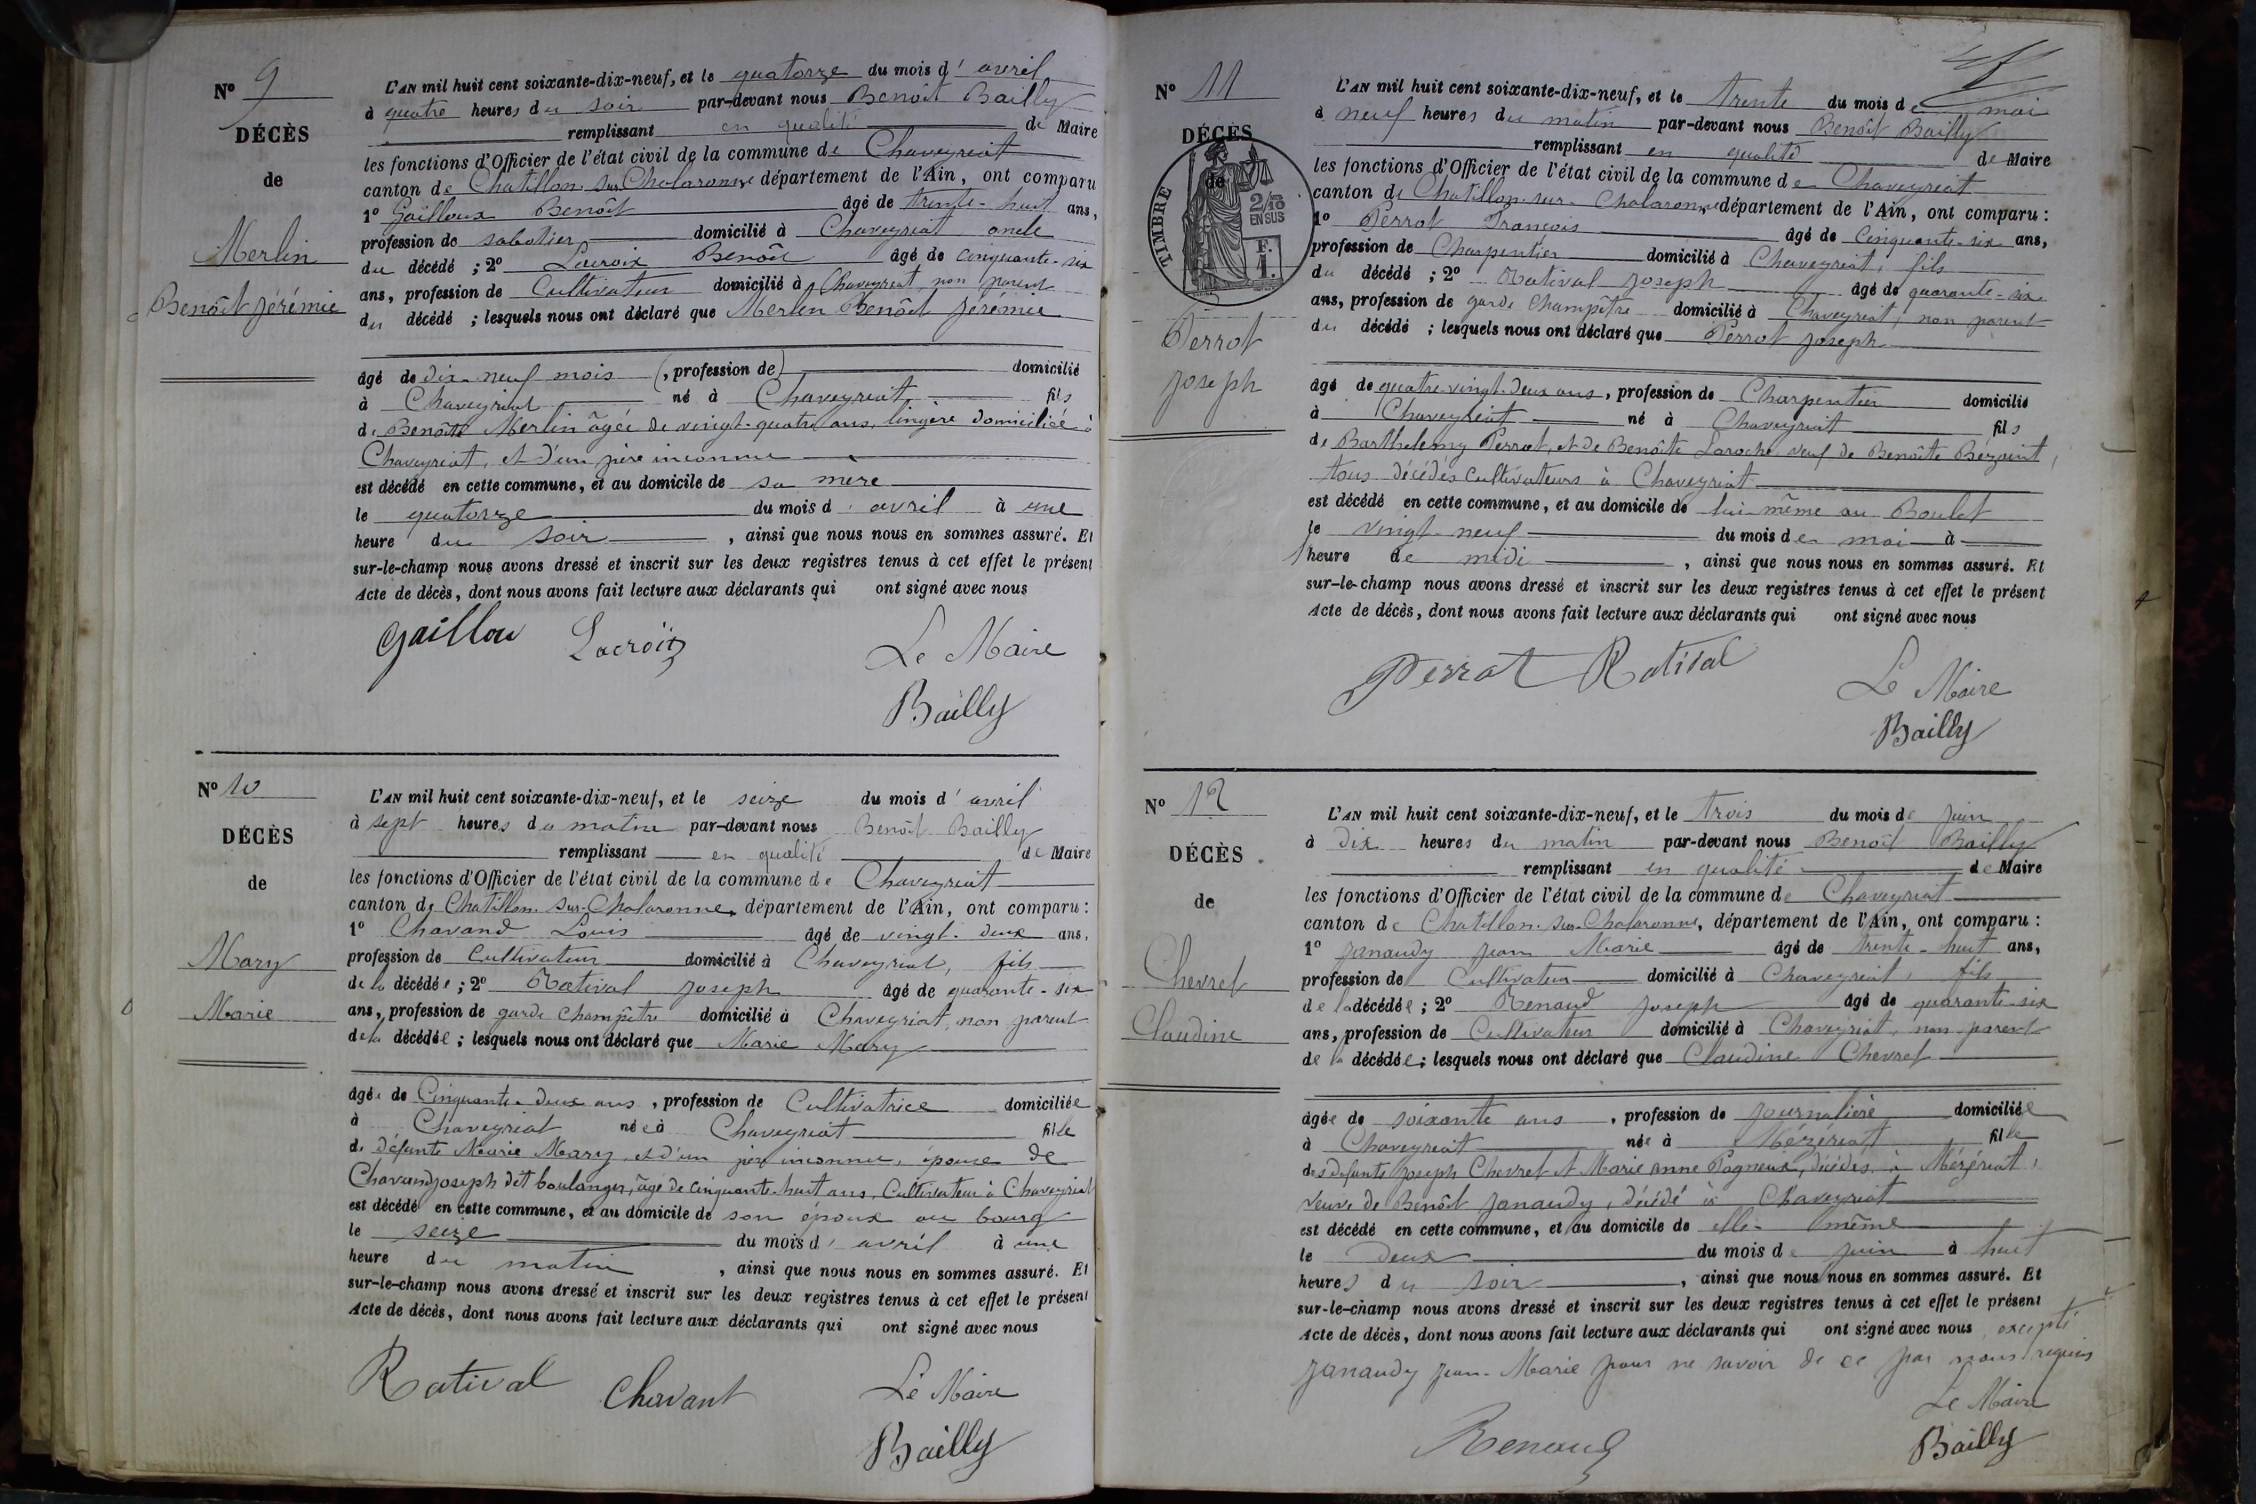 N° 9
DÉCÈS
de
Merlin
Benoît Jérémie
L'AN mil huit cent soixante-dix-neuf, et le quatorze du mois d'avril
à quatre heures du soir par-devant nous Benoît Bailly
remplissant en qualité de Maire
les fonctions d'Officier de l'état civil de la commune de Chaveyriat
canton de Chatillon-sur-Chalaronne, département de l'Ain, ont comparu
1° Gailloux Benoît âgé de trente-huit ans,
profession de sabotier domicilié à Chaveyriat oncle
du décédé ; 2° Lacroix Benoît âgé de cinquante-six
ans, profession de Cultivateur domicilié à Chaveyriat, non parent
du décédé ; lesquels nous ont déclaré que Merlin Benoît Jérémie
âgé de dix-neuf mois (, profession de) domicilié
à Chaveyriat né à Chaveyriat fils
de Benoîte Merlin âgée de vingt-quatre ans, lingère domiciliée à
Chaveyriat, et d'un père inconnu
est décédé en cette commune, et au domicile de sa mère
le quatorze du mois d'avril à une
heure du soir, ainsi que nous nous en sommes assuré. Et
sur-le-champ nous avons dressé et inscrit sur les deux registres tenus à cet effet le présent
Acte de décès, dont nous avons fait lecture aux déclarants qui ont signé avec nous
Gaillou Lacroix Le Maire
Bailly
N° 10
DÉCÈS
de
Mary
Marie
L'AN mil huit cent soixante-dix-neuf, et le seize du mois d'avril
à sept heures du matin par-devant nous Benoît Bailly
remplissant en qualité de Maire
les fonctions d'Officier de l'état civil de la commune de Chaveyriat
canton de Chatillon-sur-Chalaronne, département de l'Ain, ont comparu :
1° Chavand Louis âgé de vingt-deux ans,
profession de Cultivateur domicilié à Chaveyriat, fils
de la décédée ; 2° Ratival Joseph âgé de quarante-six
ans, profession de garde champêtre domicilié à Chaveyriat, non parent
de la décédée ; lesquels nous ont déclaré que Marie Mary
âgée de Cinquante-deux ans, profession de Cultivatrice domiciliée
à Chaveyriat née à Chaveyriat fille
de défunte Marie Mary et d'un père inconnu, épouse de
Chavand Joseph dit boulanger, âgé de cinquante-huit ans, Cultivateur à Chaveyriat
est décédé en cette commune, et au domicile de son époux au bourg
le seize du mois d'avril à une
heure du matin, ainsi que nous nous en sommes assuré. Et
sur-le-champ nous avons dressé et inscrit sur les deux registres tenus à cet effet le présent
Acte de décès, dont nous avons fait lecture aux déclarants qui ont signé avec nous
Ratival Chavant Le Maire
Bailly
N° 11
DÉCÈS
de
TIMBRE
2/10
EN SUS
F.
1.
Perrot
Joseph
L'AN mil huit cent soixante-dix-neuf, et le trente du mois de mai
à neuf heures du matin par-devant nous Benoît Bailly
remplissant en qualité de Maire
les fonctions d'Officier de l'état civil de la commune de Chaveyriat
canton de Chatillon-sur-Chalaronne, département de l'Ain, ont comparu :
1° Perrot François âgé de cinquante-six ans,
profession de Charpentier domicilié à Chaveyriat, fils
du décédé ; 2° Ratival Joseph âgé de quarante-six
ans, profession de garde champêtre domicilié à Chaveyriat, non parent
du décédé ; lesquels nous ont déclaré que Perrot Joseph
âgé de quatre-vingt-deux ans, profession de Charpentier domicilié
à Chaveyriat né à Chaveyriat fils
de Barthelemy Perrot, et de Benoîte Laroche, veuf de Benoîte
tous décédés cultivateurs à Chaveyriat
est décédé en cette commune, et au domicile de lui-même au Boulet
le vingt-neuf du mois de mai à
heure de midi, ainsi que nous nous en sommes assuré. Et
sur-le-champ nous avons dressé et inscrit sur les deux registres tenus à cet effet le présent
Acte de décès, dont nous avons fait lecture aux déclarants qui ont signé avec nous
Perrot Ratival Le Maire
Bailly
N° 12
DÉCÈS
de
Chevret
Claudine
L'AN mil huit cent soixante-dix-neuf, et le trois du mois de juin
à dix heures du matin par-devant nous Benoît Bailly
remplissant en qualité de Maire
les fonctions d'Officier de l'état civil de la commune de Chaveyriat
canton de Chatillon-sur-Chalaronne, département de l'Ain, ont comparu :
1° Janaudy Jean Marie âgé de trente-huit ans,
profession de Cultivateur domicilié à Chaveyriat, fils
de la décédée ; 2° Renaud Joseph âgé de quarante-six
ans, profession de Cultivateur domicilié à Chaveyriat, non parent
de la décédée ; lesquels nous ont déclaré que Claudine Chevret
âgée de soixante ans, profession de journalière domiciliée
à Chaveyriat née à Mézériat fille
des défunts Joseph Chevret et Marie Anne Pagneux, décédés à Mézériat,
veuve de Benoît Janaudy, décédé à Chaveyriat
est décédé en cette commune, et au domicile de elle-même
le deux du mois de juin à huit
heures du soir, ainsi que nous nous en sommes assuré. Et
sur-le-champ nous avons dressé et inscrit sur les deux registres tenus à cet effet le présent
Acte de décès, dont nous avons fait lecture aux déclarants qui ont signé avec nous excepté
Janaudy Jean-Marie pour ne savoir de ce par nous requis
Le Maire
Renaud Bailly